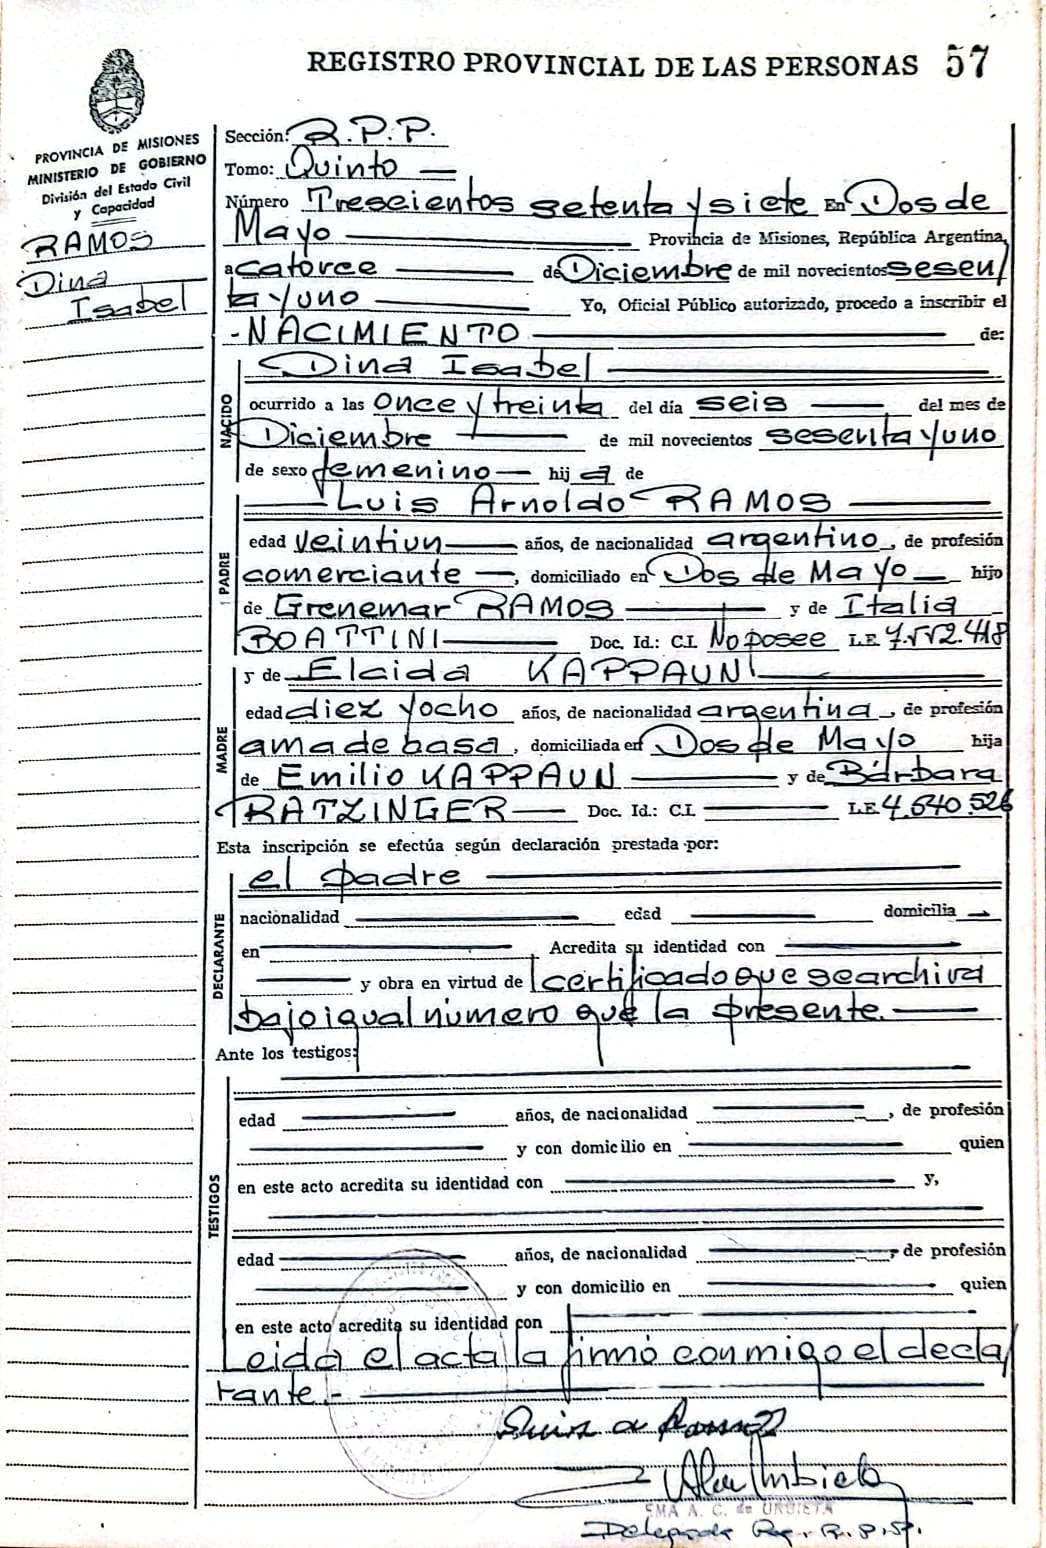 REGISTRO PROVINCIAL DE LAS PERSONAS 57
PROVINCIA DE MISIONES
MINISTERIO DE GOBIERNO
División del Estado Civil
y Capacidad
RAMOS
Dina
Isabel
Sección: R.P.P.
Tomo: Quinto
Número Trescientos setenta y siete En Dos de
Mayo Provincia de Misiones, República Argentina,
a catorce de Diciembre de mil novecientos sesen/
ta y uno Yo, Oficial Público autorizado, procedo a inscribir el
-NACIMIENTO de:
NACIDO
Dina Isabel
ocurrido a las once y treinta del día seis del mes de
Diciembre de mil novecientos sesenta y uno
de sexo femenino hij a de
PADRE
Luis Arnoldo RAMOS
edad veintiun años, de nacionalidad argentino, de profesión
comerciante, domiciliado en Dos de Mayo hijo
de Grenemar RAMOS y de Italia
BOATTINI Doc. Id.: C.I. No posee L.E. 7.552.418
MADRE
y de Elcida KAPPAUN
edad diez y ocho años, de nacionalidad argentina, de profesión
ama de basa, domiciliada en Dos de Mayo hija
de Emilio KAPPAUN y de Bárbara
RATZINGER Doc. Id.: C.I. L.E. 4.640.526
Esta inscripción se efectúa según declaración prestada por:
DECLARANTE
el padre
nacionalidad edad domicilia
en Acredita su identidad con
y obra en virtud de certificado que se archiva
bajo igual número que la presente.
Ante los testigos:
TESTIGOS
edad años, de nacionalidad , de profesión
y con domicilio en quien
en este acto acredita su identidad con y,
edad años, de nacionalidad , de profesión
y con domicilio en quien
en este acto acredita su identidad con
Leida el acta la firmó conmigo el decla/
rante.-
Luis A Ramos
EMA A. C. de URBIETA
Delegada Reg. R. P. P.